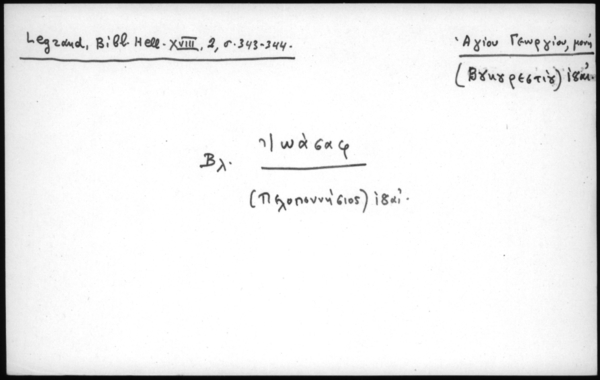 Legrand, Bibl. Hell. XVIII, 2, σ. 343-344.
Ἁγίου Γεωργίου, μονή
(Βουκουρεστίου)
Βλ. Ἰωάσαφ
(Πελοποννήσιος)